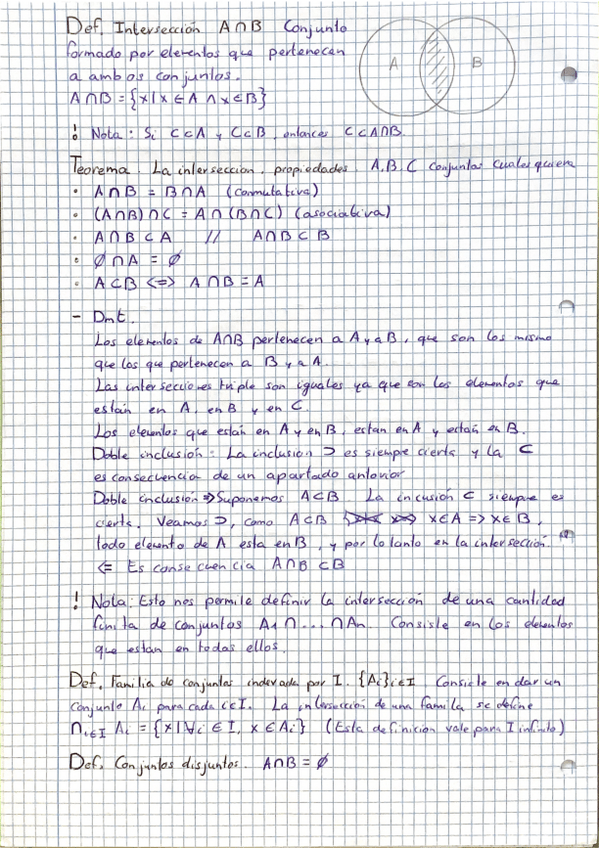 Def. Intersección A∩B Conjunto
formado por elementos que pertenecen
a ambos conjuntos.
A∩B = {x | x ∈ A ∧ x ∈ B}
A B
! Nota: Si C⊂A y C⊂B, entonces C⊂A∩B
Teorema. La interseccion, propiedades. A, B, C conjuntos cualesquiera
· A∩B = B∩A (conmutativa)
· (A∩B)∩C = A∩(B∩C) (asociativa)
· A∩B ⊂ A // A∩B ⊂ B
· ∅∩A = ∅
· A⊂B <=> A∩B = A
- Dmt.
Los elementos de A∩B pertenecen a A y a B, que son los mismo
que los que pertenecen a B y a A.
Las intersecciones triple son iguales ya que son los elementos que
están en A, en B y en C.
Los elementos que están en A y en B, estan en A y están en B.
Doble inclusión: La inclusion ⊃ es siempre cierta y la ⊂
es consecuencia de un apartado anterior
Doble inclusión => Suponemos A⊂B La incusión ⊂ siempre es
cierta. Veamos ⊃, como A⊂B x∈A => x∈B,
todo elemento de A esta en B, y por lo tanto en la intersección.
<= Es consecuencia A∩B ⊂B
! Nota: Esto nos permite definir la intersección de una cantidad
finita de conjuntos A1∩...∩An. Consiste en los elementos
que estan en todas ellos.
Def. Familia de conjuntos indexada por I. {Ai}i∈I Consiste en dar un
conjunto Ai para cada i∈I. La intersección de una familia se define
∩i∈I Ai = {x | ∀i ∈ I, x ∈ Ai} (Esta definicion vale para I infinito)
Def. Conjuntos disjuntos. A∩B = ∅